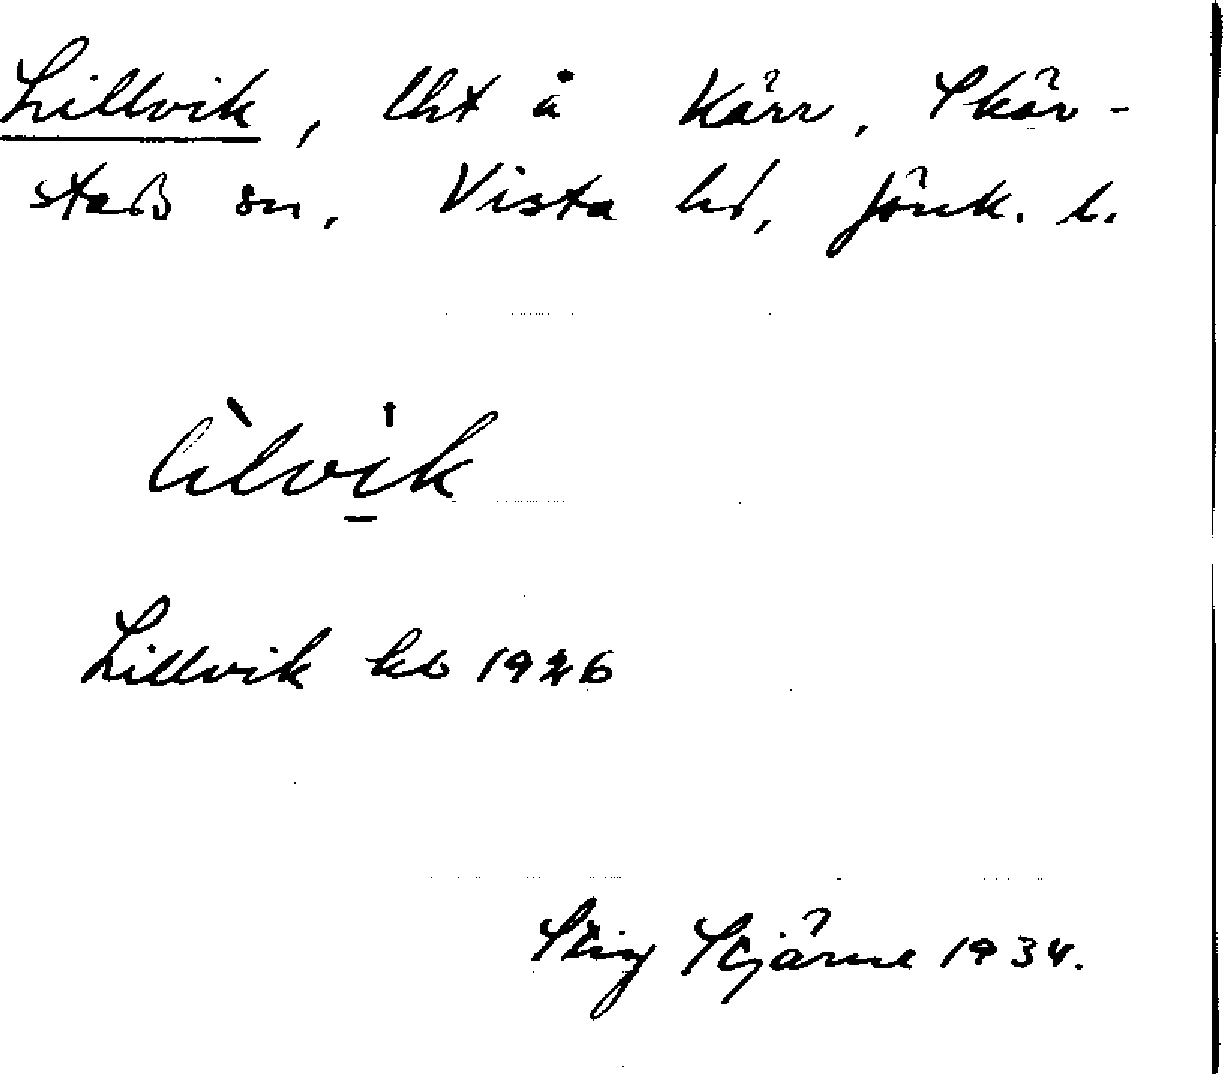 Lillvik, lht å Kärr, Skär-
stads sn, Vista hd, Jönk. l.
lilvik
Lillvik kb 1926
Stig Stjärne 1934.